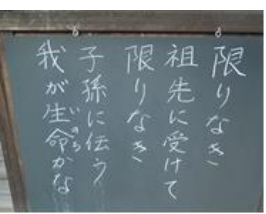 限りなき
祖先に受けて
限りなき
子孫に伝う
我が生命かな
いのち